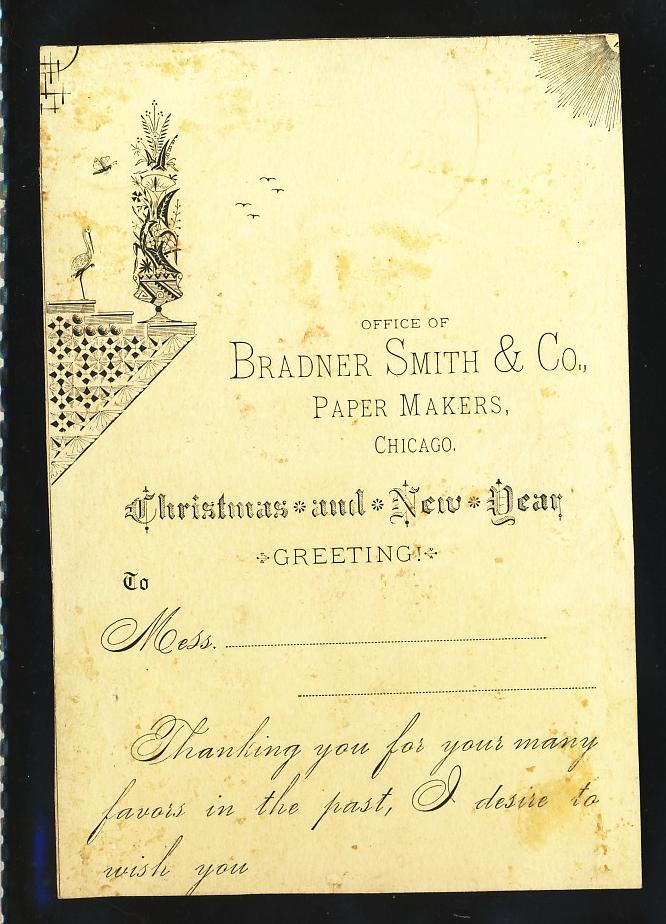 OFFICE OF
BRADNER SMITH & CO.,
PAPER MAKERS,
CHICAGO.
Christmas and New Year
GREETING!
To
Mess.
Thanking you for your many
favors in the past, I desire to
wish you